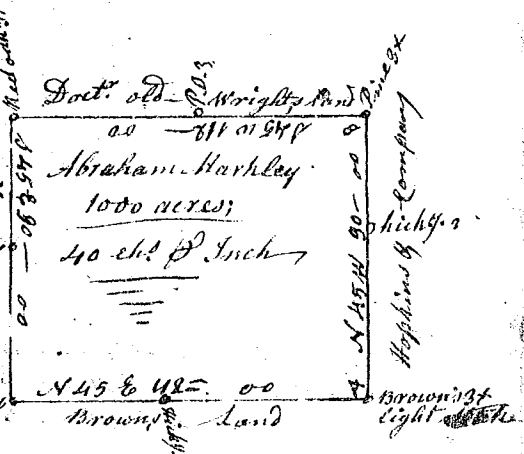 Red oak
Doctr. old Wrights land
P.O. 3
Pine 3x
S 45 W 118 — 00
Abraham Markley
1000 acres;
40 chs. P Inch
S 45 E 90 — 00
N 45 W 90 — 00
hicky. 3
Hopkins & Company
N 45 E 118 = 00
Browns land
hicky.
Brown's 3x
light